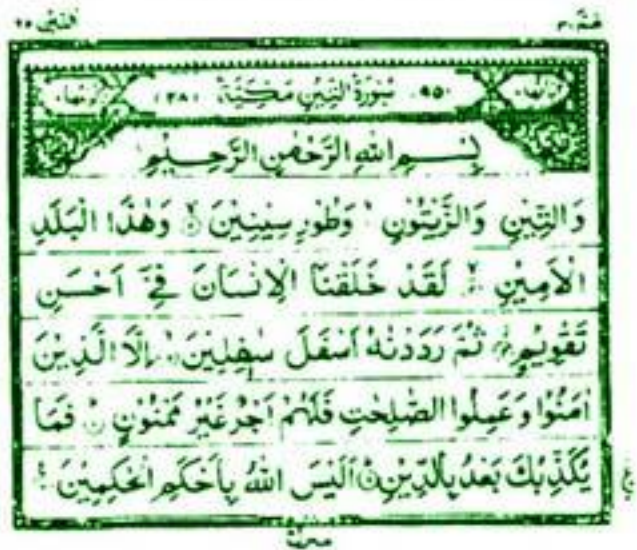 عم ٣٠ التين ٩٥
(٩٥) سُوْرَةُ التِّيْنِ مَكِّيَّةٌ (٢٨)
بِسْمِ اللهِ الرَّحْمٰنِ الرَّحِيْمِ
وَالتِّيْنِ وَالزَّيْتُوْنِ ۙ وَطُوْرِ سِيْنِيْنَ ۙ وَهٰذَا الْبَلَدِ
الْاَمِيْنِ ۙ لَقَدْ خَلَقْنَا الْاِنْسَانَ فِيْٓ اَحْسَنِ
تَقْوِيْمٍ ۫ ثُمَّ رَدَدْنٰهُ اَسْفَلَ سٰفِلِيْنَ ۙ اِلَّا الَّذِيْنَ
اٰمَنُوْا وَعَمِلُوا الصّٰلِحٰتِ فَلَهُمْ اَجْرٌ غَيْرُ مَمْنُوْنٍ ۗ فَمَا
يُكَذِّبُكَ بَعْدُ بِالدِّيْنِ ۗ اَلَيْسَ اللهُ بِاَحْكَمِ الْحٰكِمِيْنَ
ع
منزل